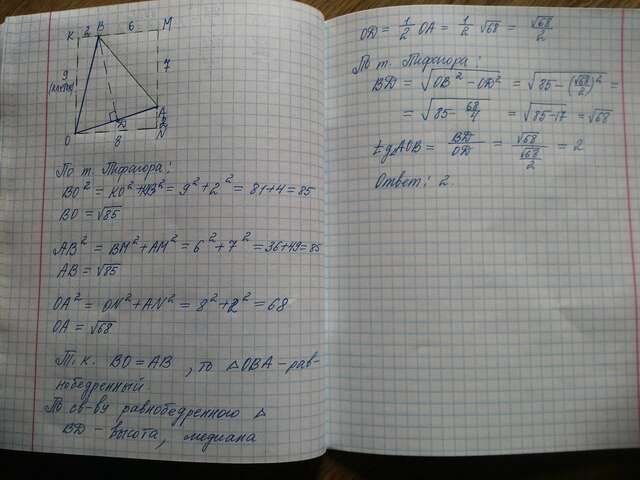 K 2 B 6 M
9
(клеток)
7
A
2
D
O 8 N
По т. Пифагора:
BO² = KO² + KB² = 9² + 2² = 81 + 4 = 85
BO = √85
AB² = BM² + AM² = 6² + 7² = 36 + 49 = 85
AB = √85
OA² = ON² + AN² = 8² + 2² = 68
OA = √68
Т.к. BO = AB , то △OBA – рав-
нобедренный
По св-ву равнобедренного △
BD – высота, медиана
OD = 1/2 OA = 1/2 √68 = √68/2
По т. Пифагора:
BD = √(OB² − OD²) = √(85 − (√68/2)²) =
= √(85 − 68/4) = √(85−17) = √68
tg∠AOB = BD/OD = √68/(√68/2) = 2
Ответ: 2.